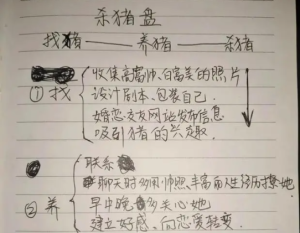 杀猪盘
找猪——养猪——杀猪
收集高富帅、白富美的照片
①找 设计剧本、包装自己
婚恋交友网站发布信息
吸引猪的兴趣
联系
聊天时多用帅照、丰富的人生经历撩她
②养 早中晚多关心她
建立好感、向恋爱转变.